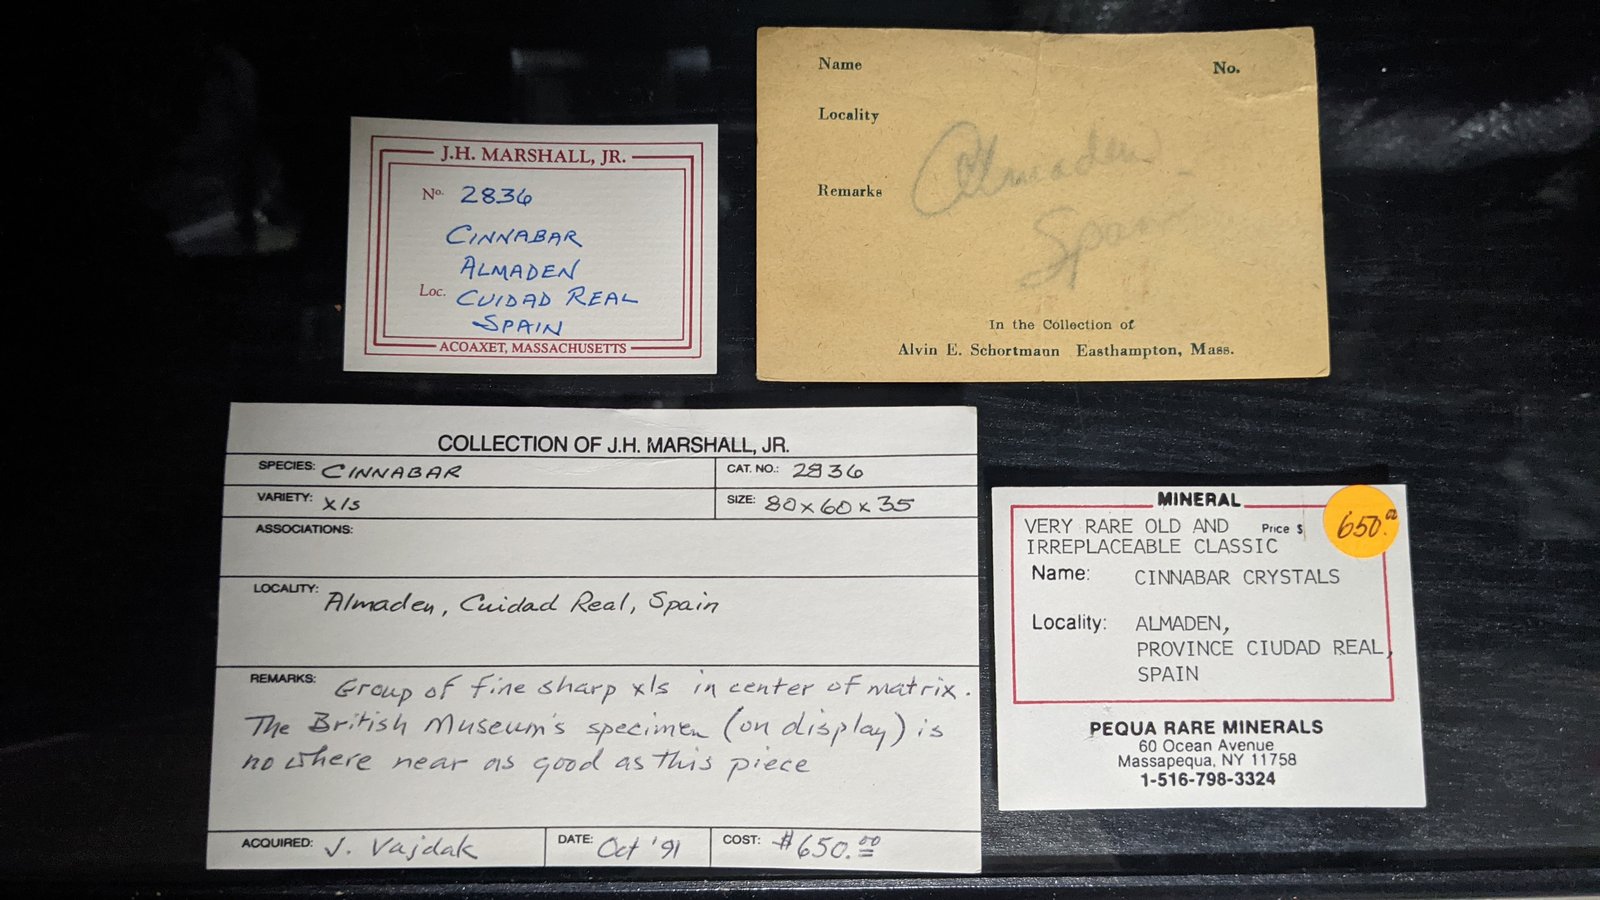 J.H. MARSHALL, JR.
No. 2836
CINNABAR
ALMADEN
Loc. CUIDAD REAL
SPAIN
ACOAXET, MASSACHUSETTS
Name No.
Locality
Almaden
Remarks
Spain
In the Collection of
Alvin E. Schortmann Easthampton, Mass.
COLLECTION OF J.H. MARSHALL, JR.
SPECIES: CINNABAR CAT. NO.: 2836
VARIETY: xls SIZE: 80x60x35
ASSOCIATIONS:
LOCALITY: Almaden, Cuidad Real, Spain
REMARKS: Group of fine sharp xls in center of matrix.
The British Museum's specimen (on display) is
no where near as good as this piece
ACQUIRED: J. Vajdak DATE: Oct '91 COST: $650.00
MINERAL
VERY RARE OLD AND Price $ 650.00
IRREPLACEABLE CLASSIC
Name: CINNABAR CRYSTALS
Locality: ALMADEN,
PROVINCE CIUDAD REAL,
SPAIN
PEQUA RARE MINERALS
60 Ocean Avenue
Massapequa, NY 11758
1-516-798-3324